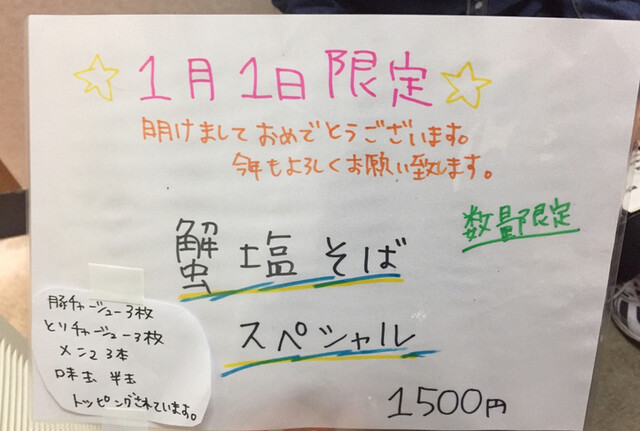 ☆1月1日限定☆
明けましておめでとうございます。
今年もよろしくお願い致します。
数量限定
蟹塩そば
スペシャル
1500円
豚チャーシュー3枚
とりチャーシュー3枚
メンマ3本
味玉 半玉
トッピングされています。